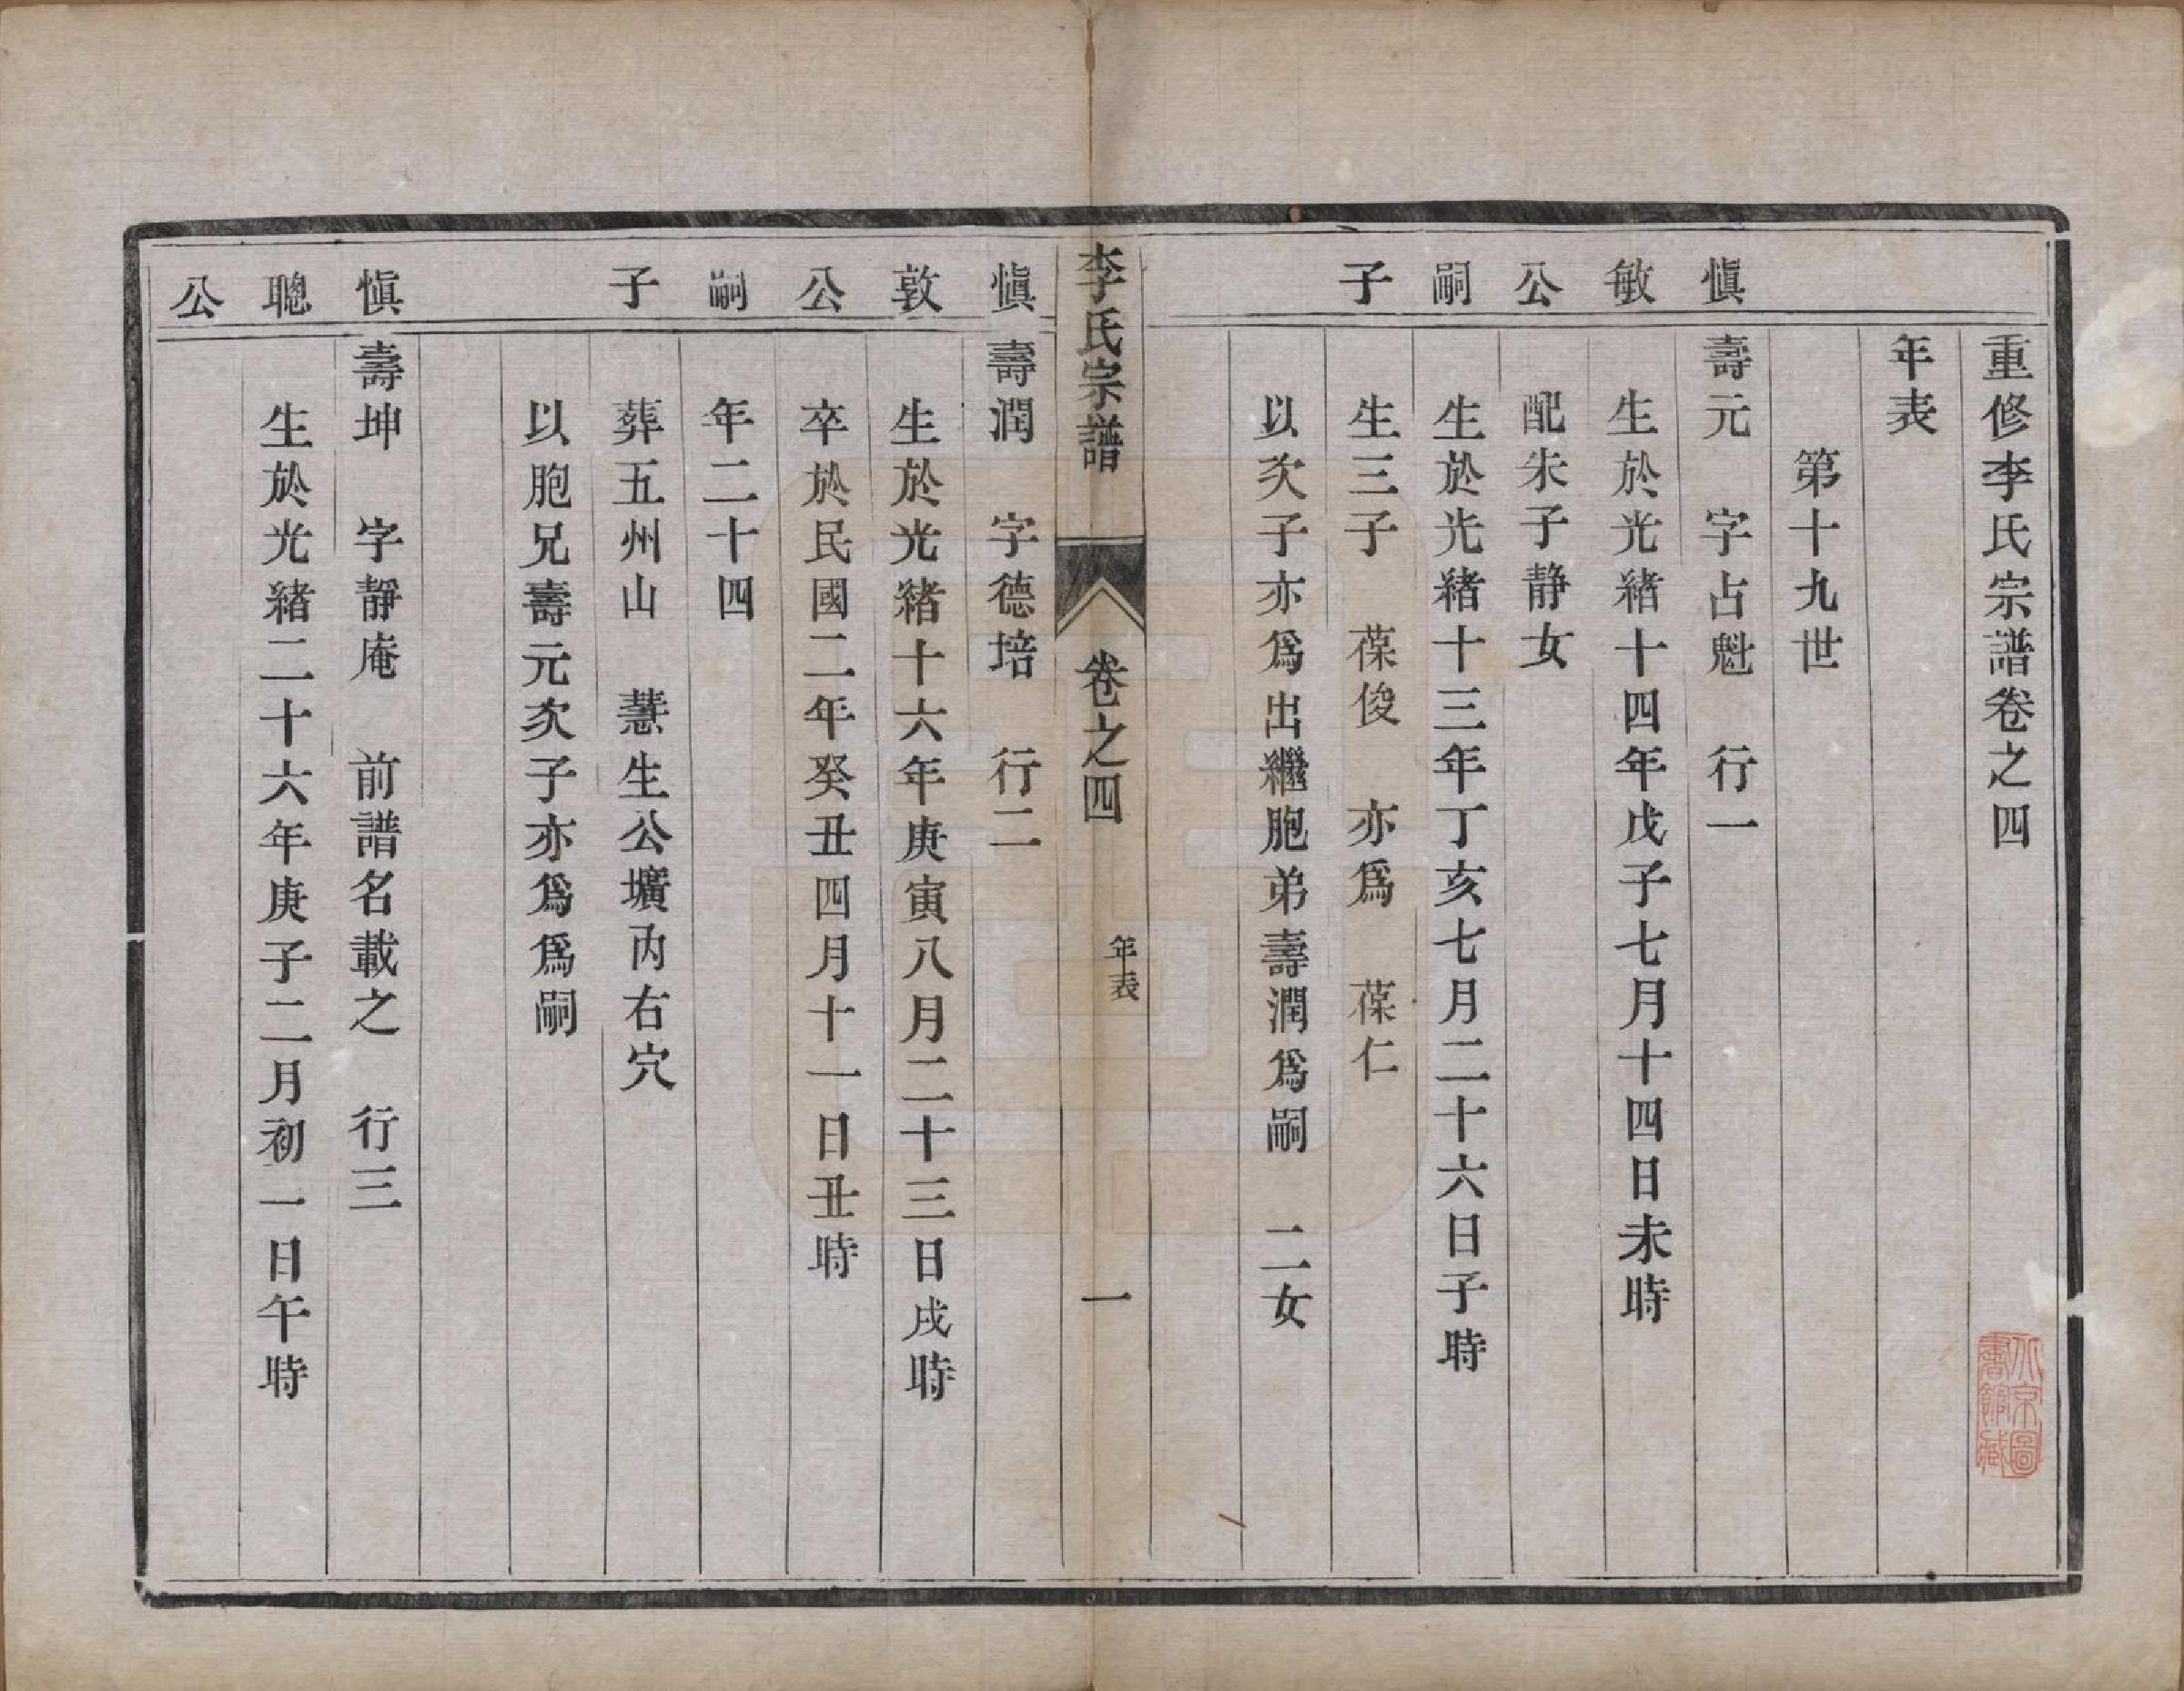 重修李氏宗譜卷之四
年表
第十九世
愼敏公嗣子
壽元 字占魁 行一
生於光緒十四年戊子七月十四日未時
配朱子靜女
生於光緒十三年丁亥七月二十六日子時
生三子 葆俊 亦爲 葆仁
以次子亦爲出繼胞弟壽潤爲嗣 二女
李氏宗譜 卷之四 年表 一
愼敦公嗣子
壽潤 字德培 行二
生於光緒十六年庚寅八月二十三日戌時
卒於民國二年癸丑四月十一日丑時
年二十四
葬五州山 慧生公壙內右穴
以胞兄壽元次子亦爲爲嗣
愼聰公
壽坤 字靜庵 前譜名載之 行三
生於光緒二十六年庚子二月初一日午時
北京圖書館藏